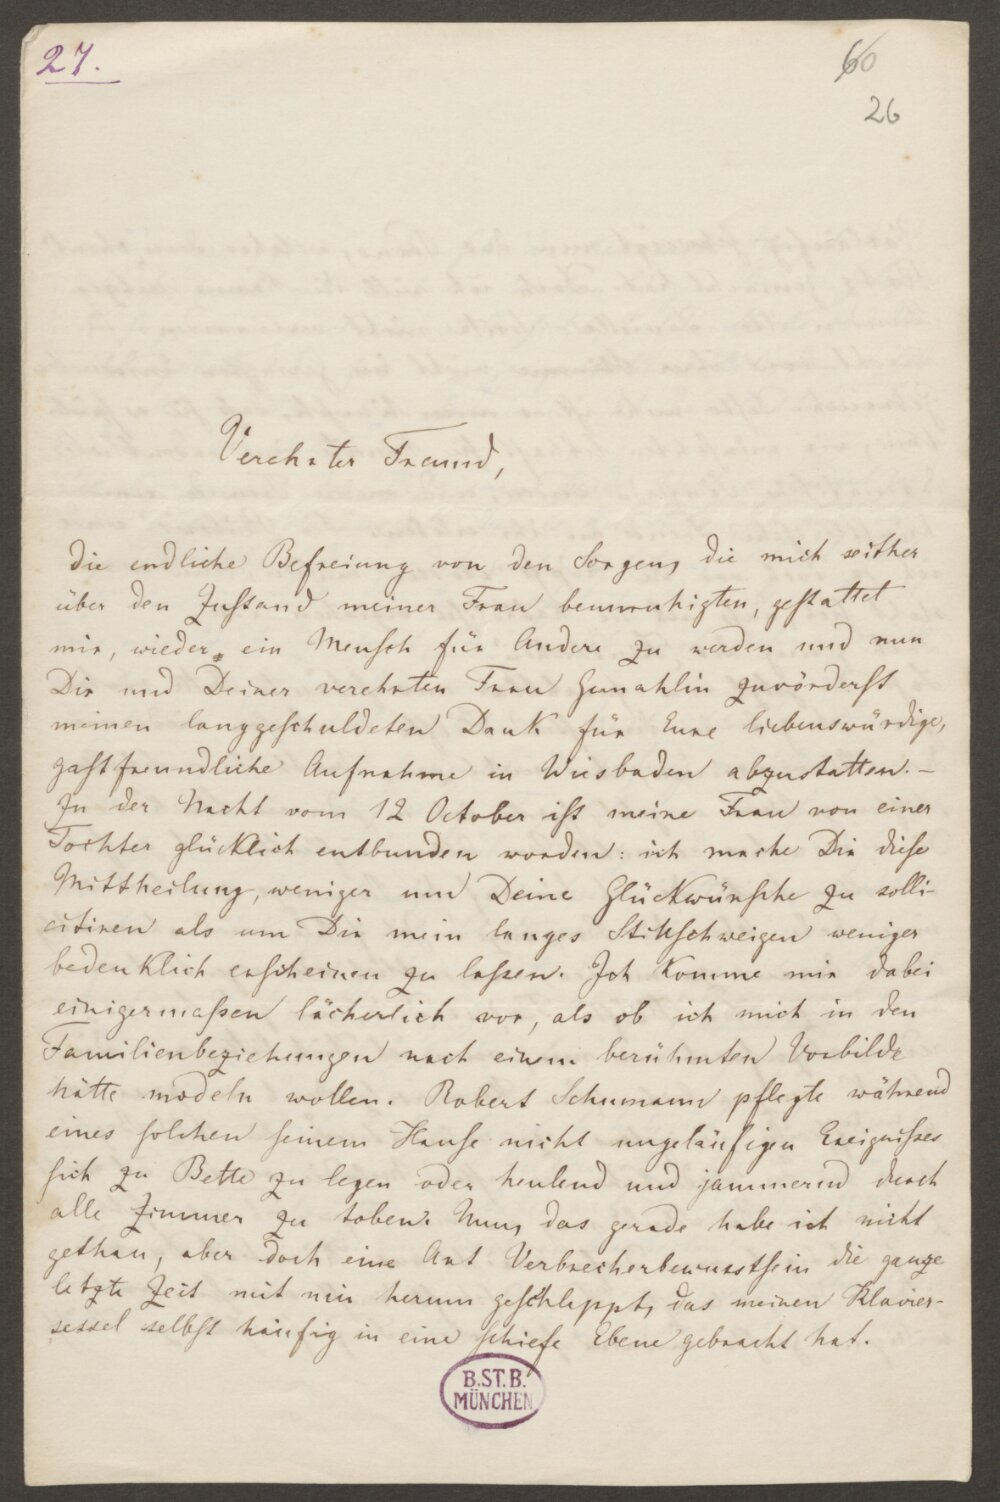 27.
60
26
Verehrter Freund,
die endliche Befreiung von den Sorgen, die mich seither
über den Zustand meiner Frau beunruhigten, gestattet
mir, wieder ein Mensch für Andere zu werden und nun
Dir und Deiner verehrten Frau Gemahlin zuvörderst
meinen langgeschuldeten Dank für Eure liebenswürdige,
gastfreundliche Aufnahme in Wiesbaden abzustatten. –
In der Nacht vom 12 October ist meine Frau von einer
Tochter glücklich entbunden worden: ich mache Dir diese
Mittheilung, weniger um Deine Glückwünsche zu solli-
citiren als um Dir mein langes Stillschweigen weniger
bedenklich erscheinen zu lassen. Ich komme mir dabei
einigermaßen lächerlich vor, als ob ich mich in den
Familienbeziehungen nach einem berühmten Vorbilde
hätte modeln wollen. Robert Schumann pflegte während
eines solchen seinem Hause nicht ungeläufigen Ereignisses
sich zu Bette zu legen oder heulend und jammernd durch
alle Zimmer zu toben. Nun, das gerade habe ich nicht
gethan, aber doch eine Art Verbrecherbewusstsein die ganze
letzte Zeit mit mir herum geschleppt, das meinen Klavier-
sessel selbst häufig in eine schiefe Ebene gebracht hat.
B.ST.B.
MÜNCHEN